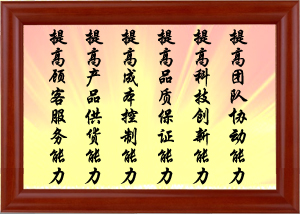 提高团队协动能力
提高科技创新能力
提高品质保证能力
提高成本控制能力
提高产品供货能力
提高顾客服务能力